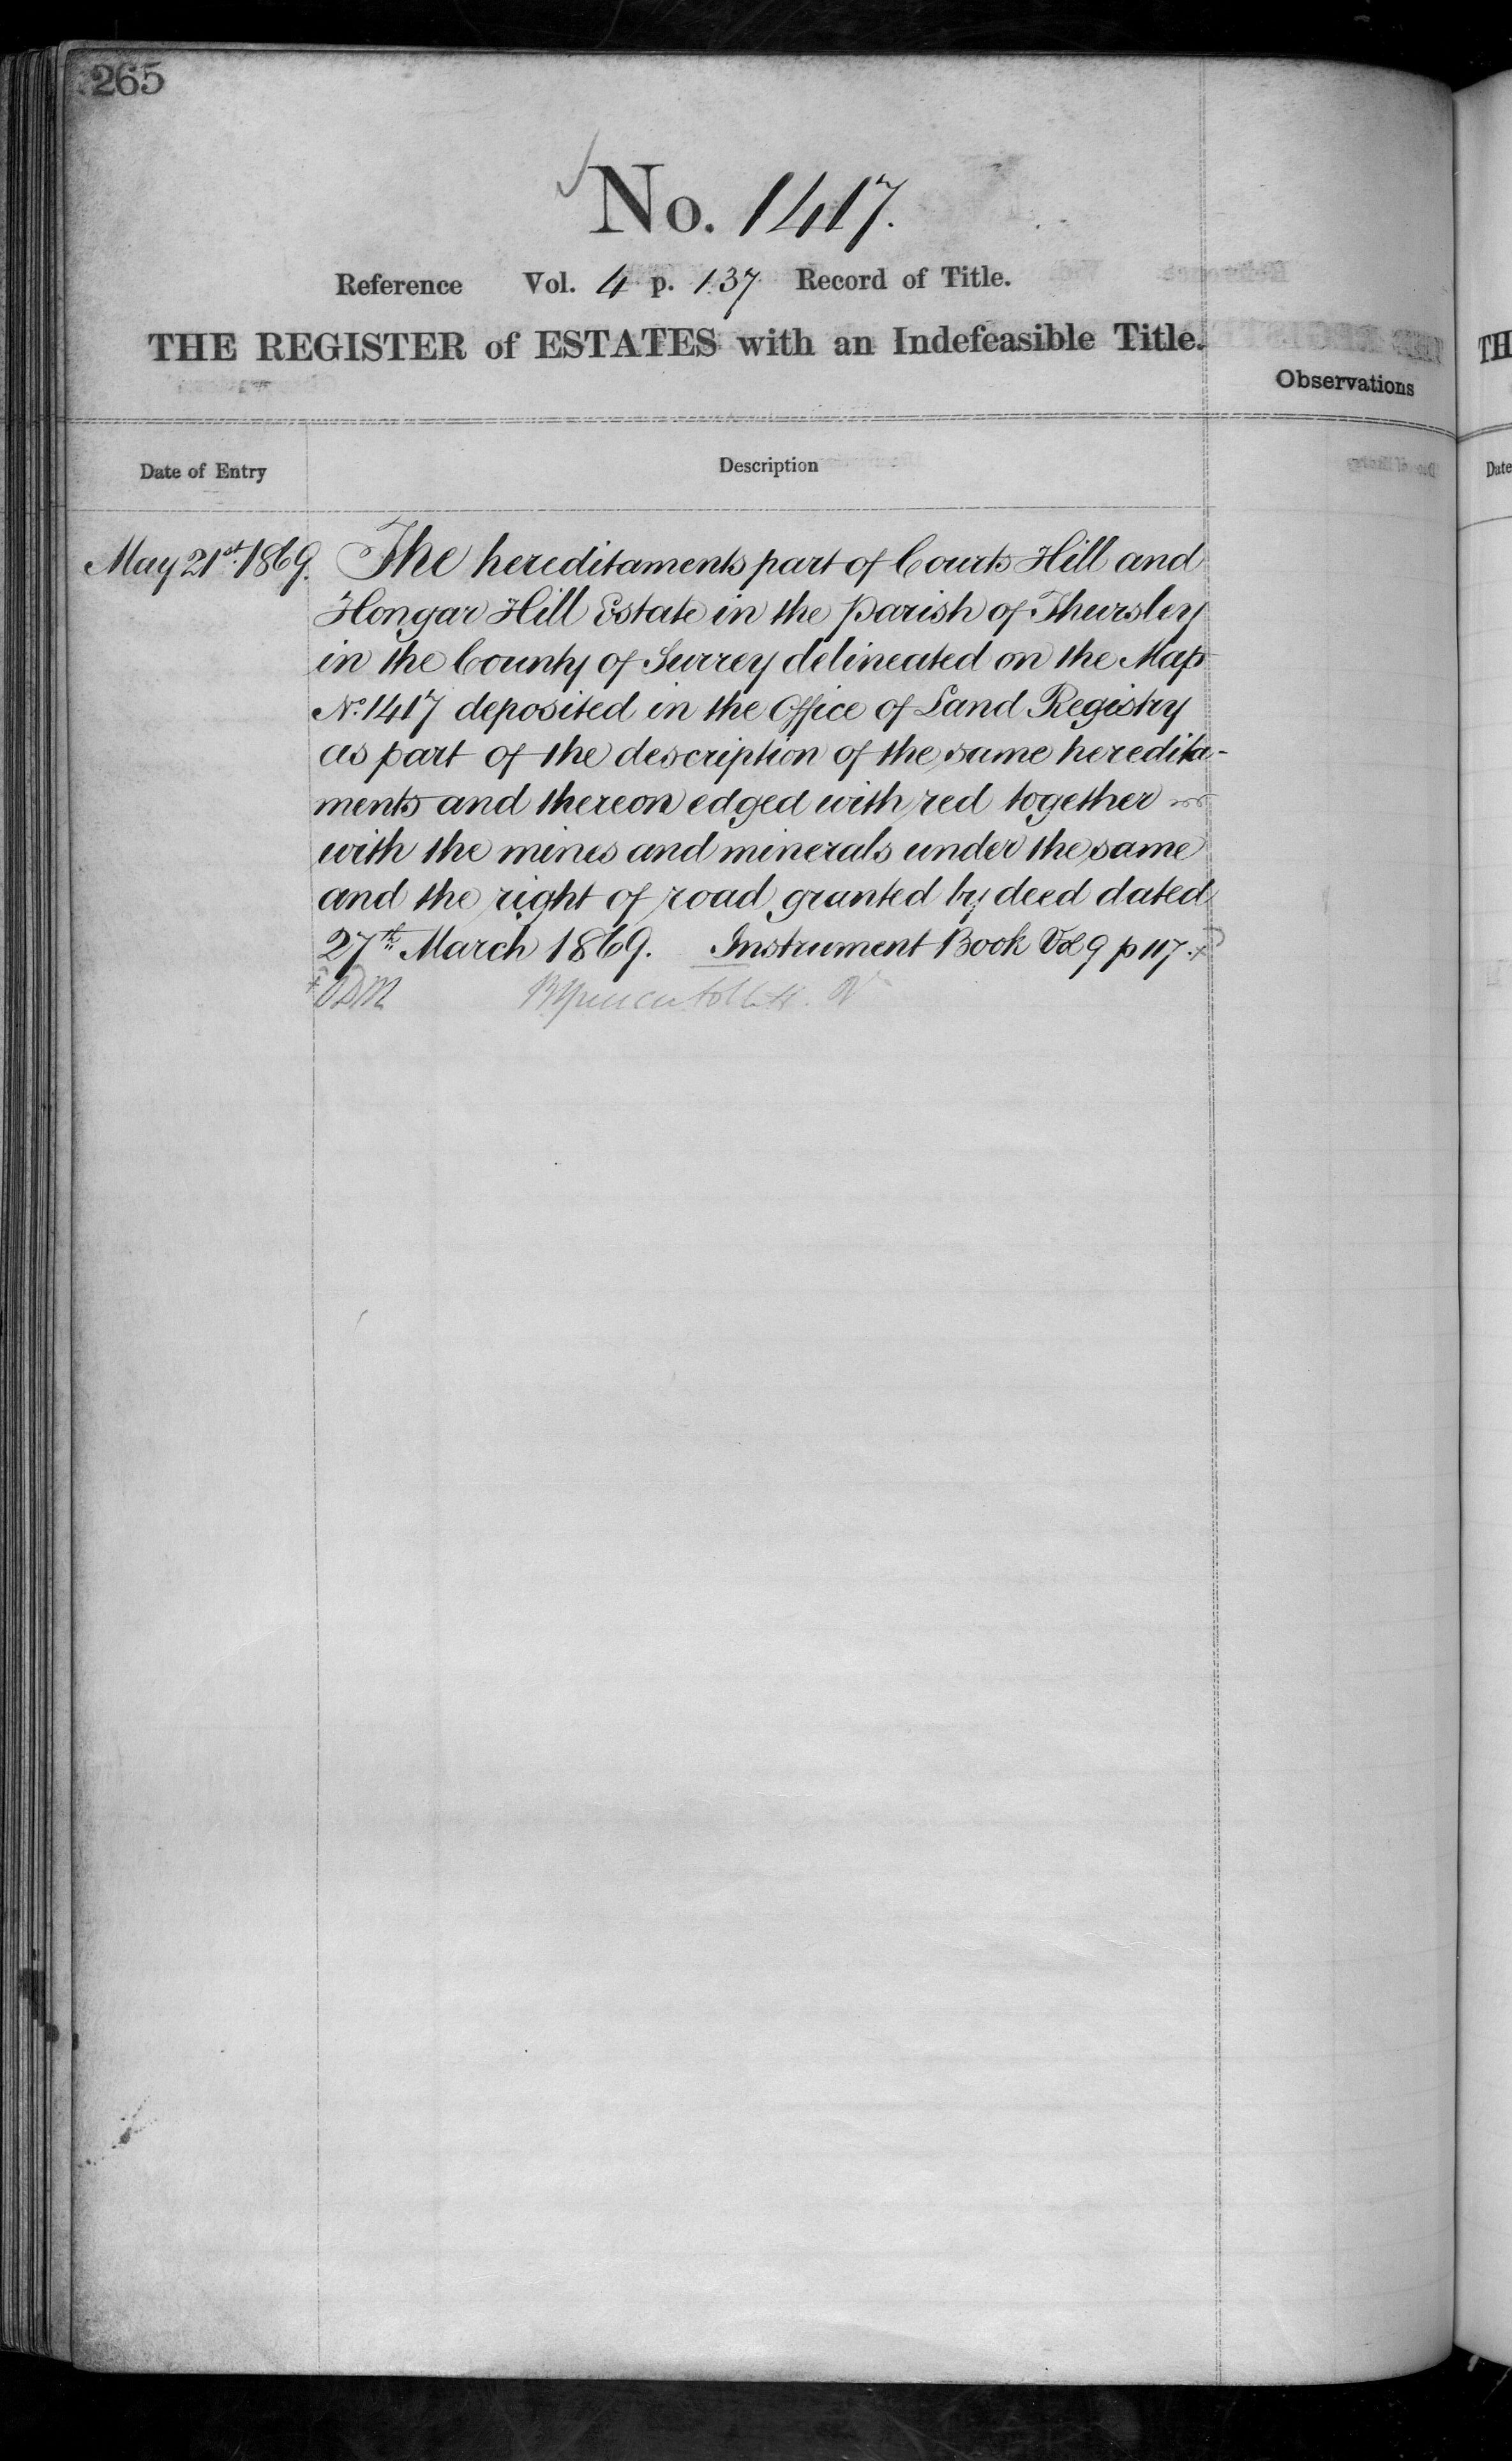 265
No. 1417.
Reference Vol. 4 p. 137 Record of Title.
THE REGISTER of ESTATES with an Indefeasible Title.
Observations
Date of Entry
Description
May 21st. 1869.
The hereditaments part of Courts Hill and
Hongar Hill Estate in the Parish of Thursley
in the County of Surrey delineated on the Map
No. 1417 deposited in the Office of Land Registry
as part of the description of the same heredita-
ments and thereon edged with red together
with the mines and minerals under the same
and the right of road granted by deed dated
27th March 1869. Instrument Book Vol 9 p 117.
TH
Date